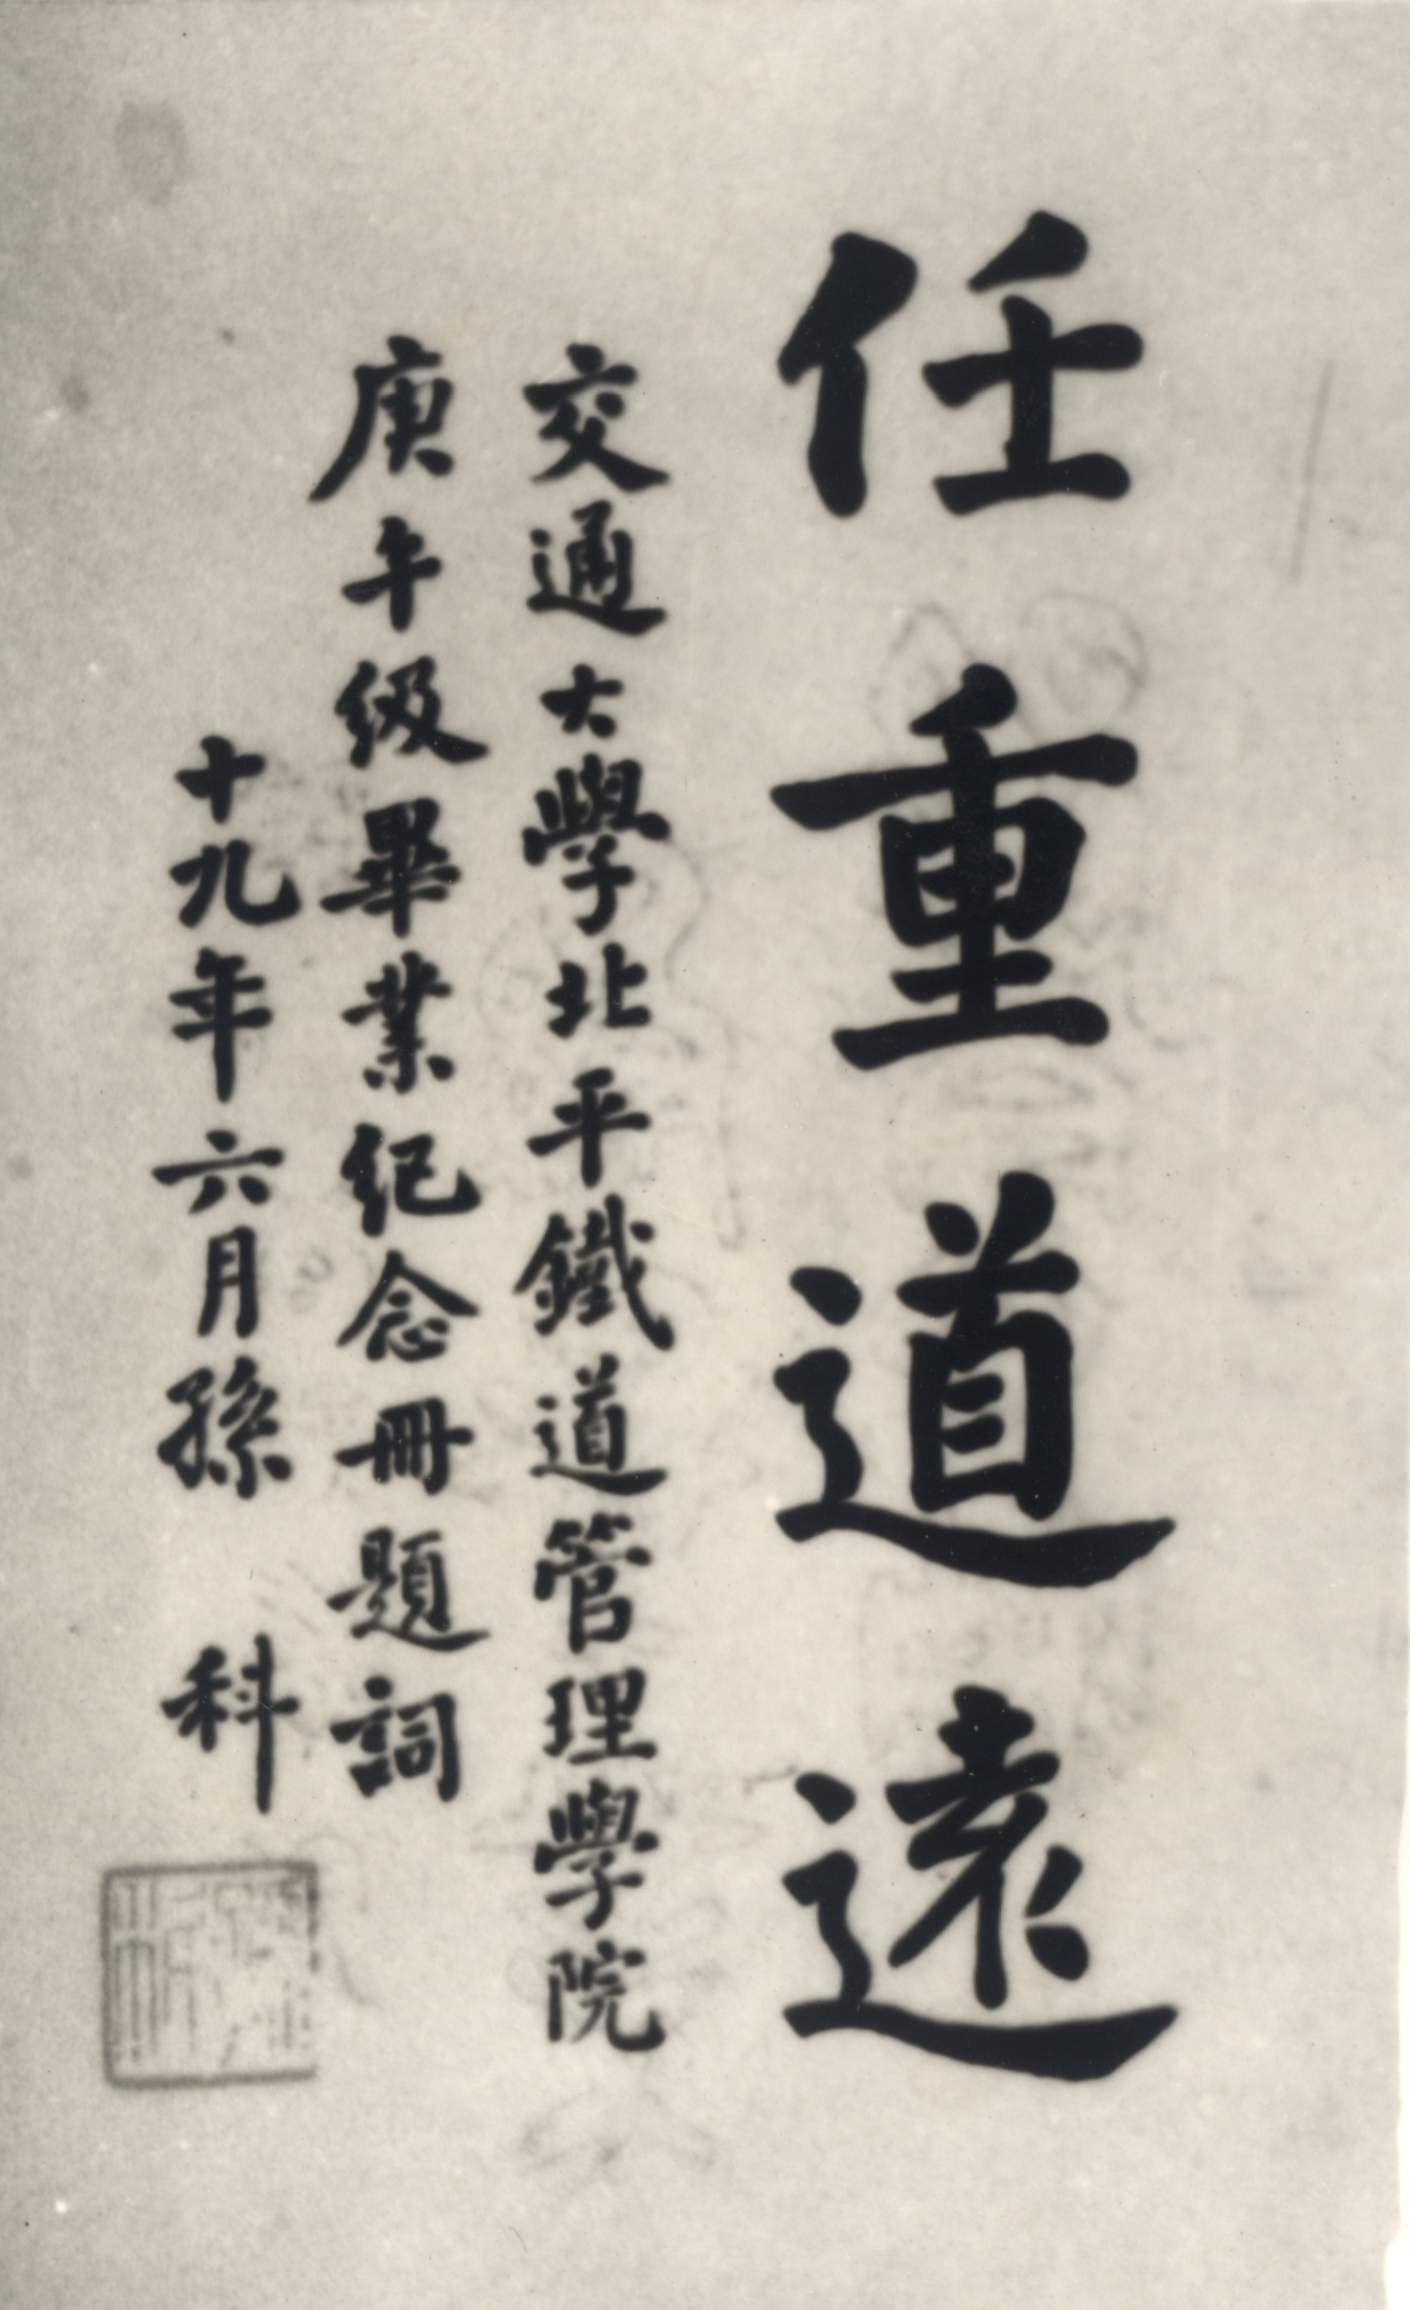 任重道遠
交通大學北平鐵道管理學院
庚午級畢業紀念冊題詞
十九年六月孫科